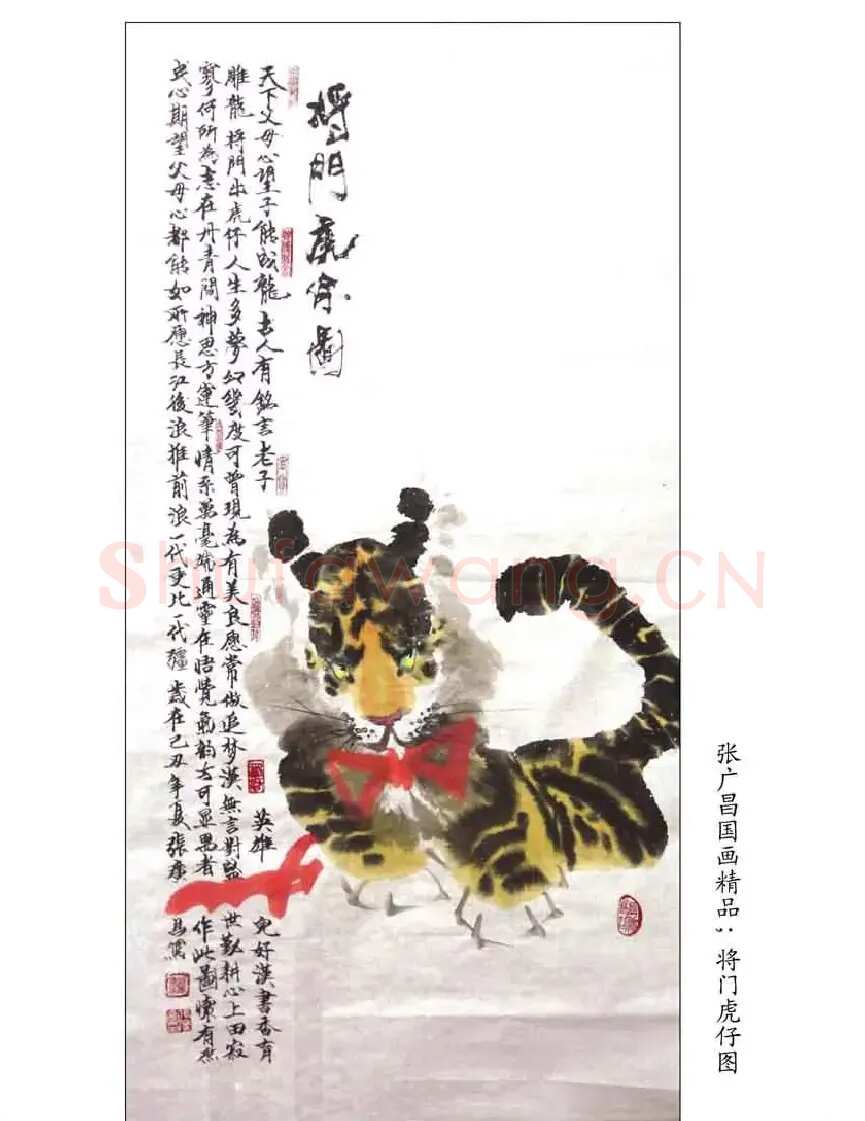 张广昌国画精品；将门虎仔图
將門虎仔圖
天下父母心望子能成龍古人有銘言老子英雄兒好漢書香有
雕龍將門出虎仔人生多夢幻幾度可曾現為有美良應常做追梦漢無言對盛世勤耕心上田寂
寥何所為志在丹青間神思方運筆情系萬毫端通靈在悟覺氣韵方可显愚者作此圖懷有
点心期望父母心都能如所愿長江後浪推前浪一代更比一代疆歲在己丑年夏張廣昌
Shufawang.CN